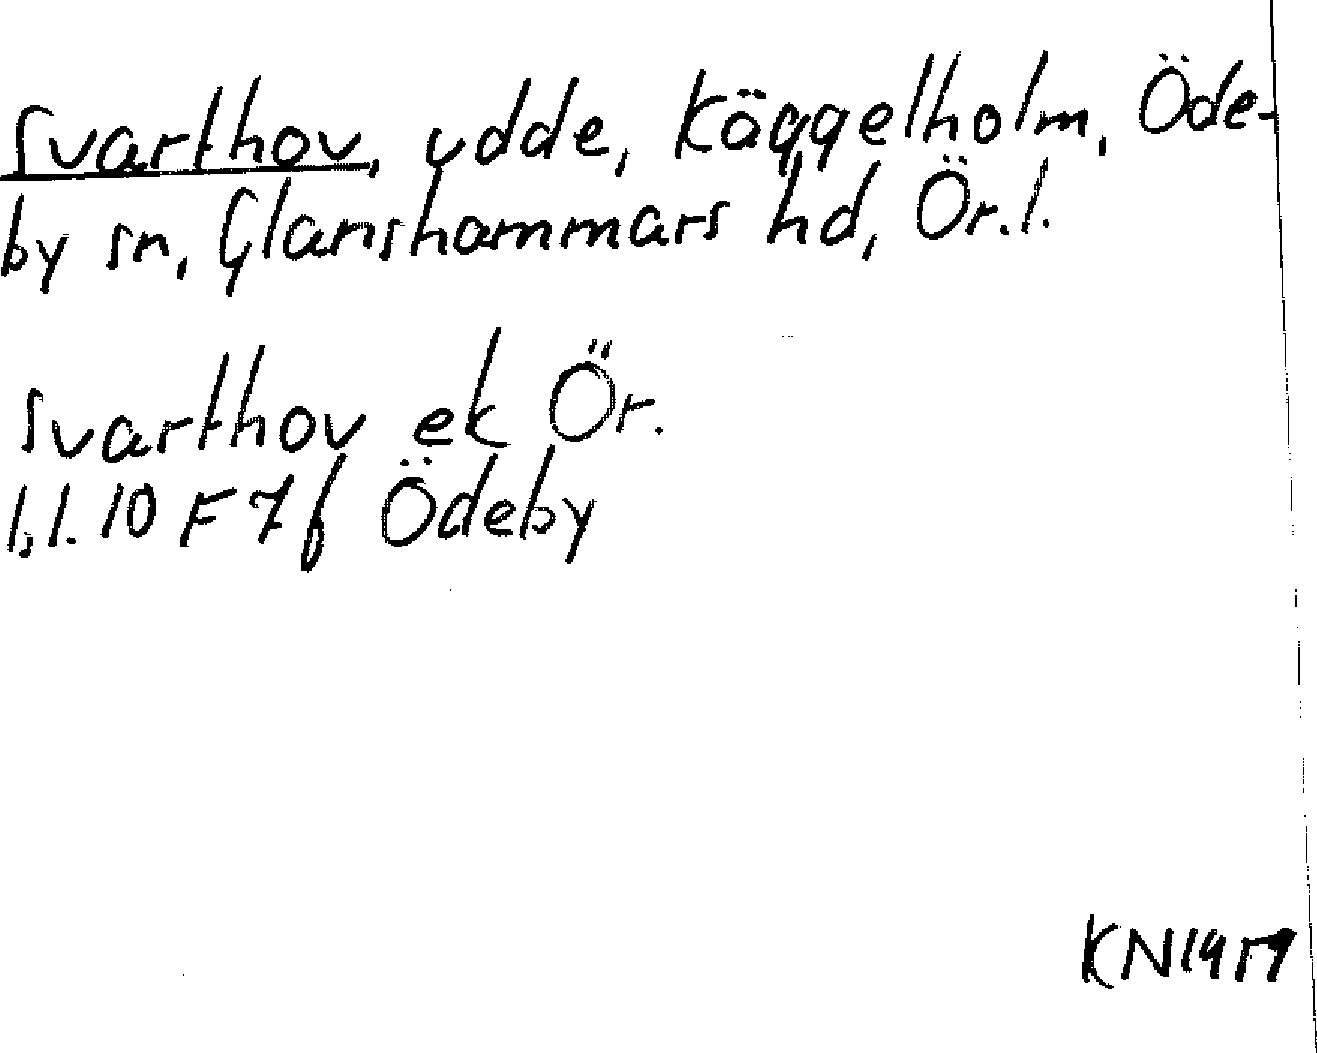 Svarthov, udde, Käggelholm, Öde-
by sn, Glanshammars hd, Ör. l.
Svarthov ek Ör.
l,l. 10 F 7 f Ödeby